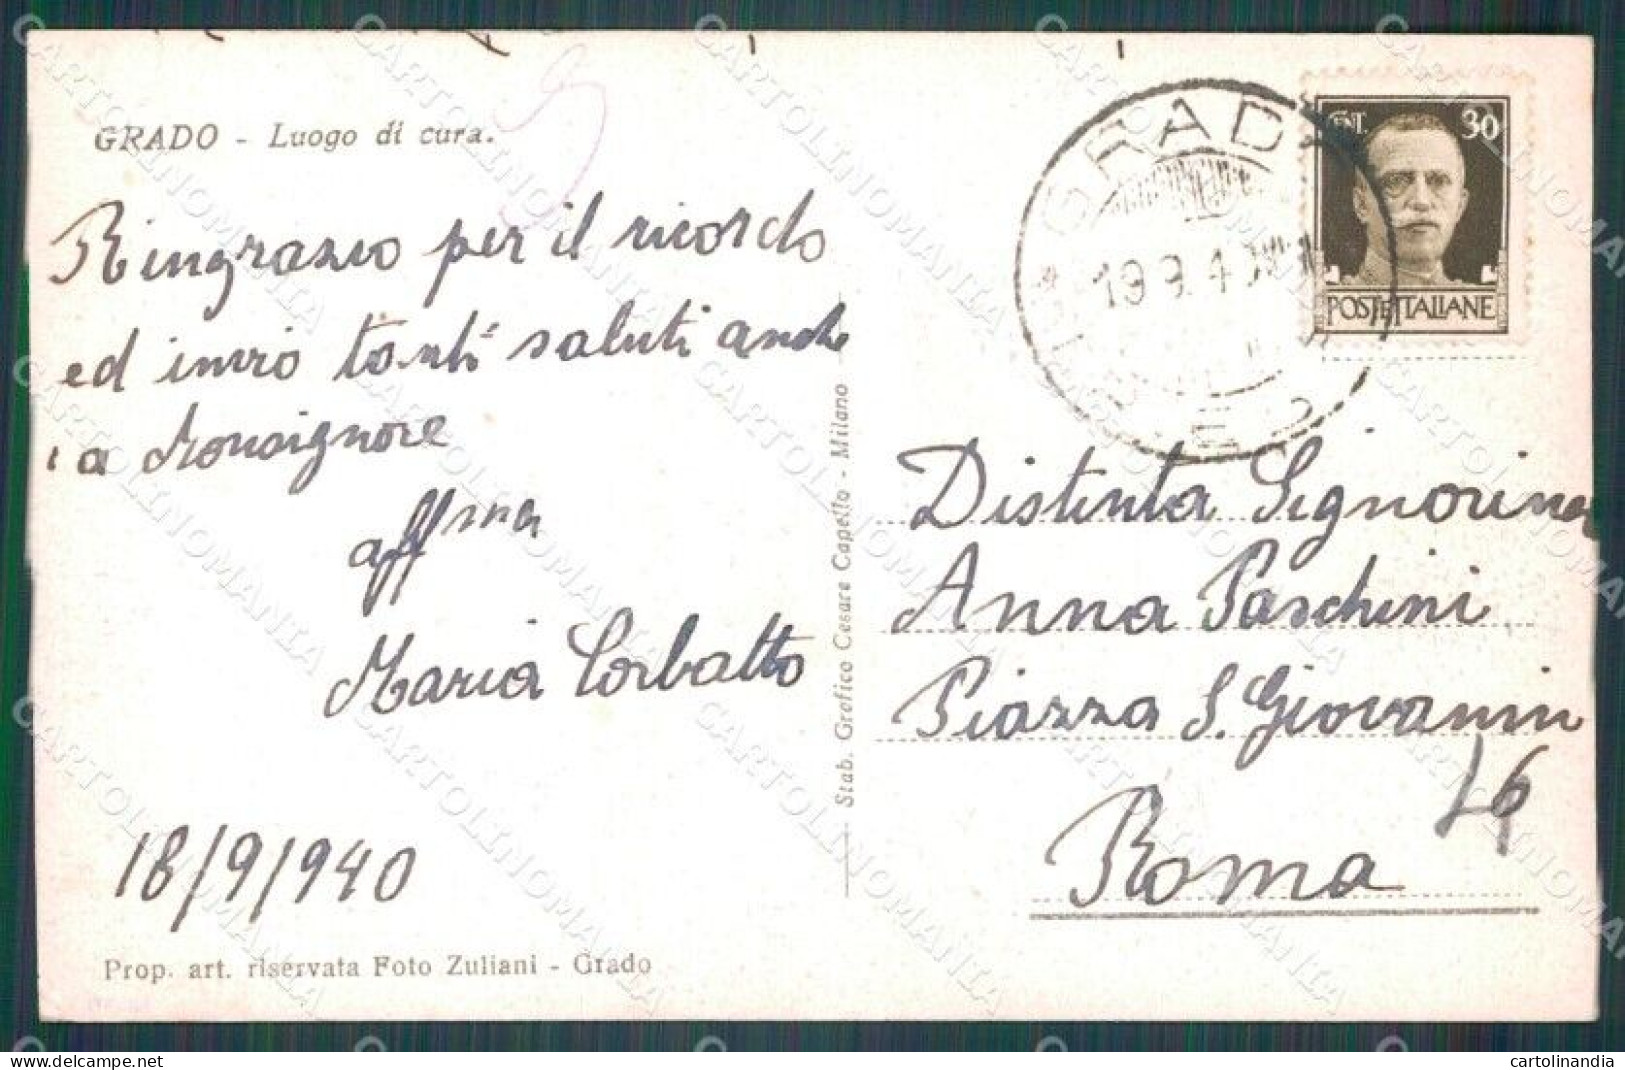 GRADO - Luogo di cura.
Ringrazio per il ricordo
ed invio tanti saluti anche
a Monsignore
aff.ma
Maria Corbatto
18/9/940
Prop. art. riservata Foto Zuliani - Grado
Stab. Grafico Cesare Capello - Milano
GRADO
19 9 40
CENT. 30
POSTE ITALIANE
Distinta Signorina
Anna Paschini
Piazza S. Giovanni
Roma
cartolinandia